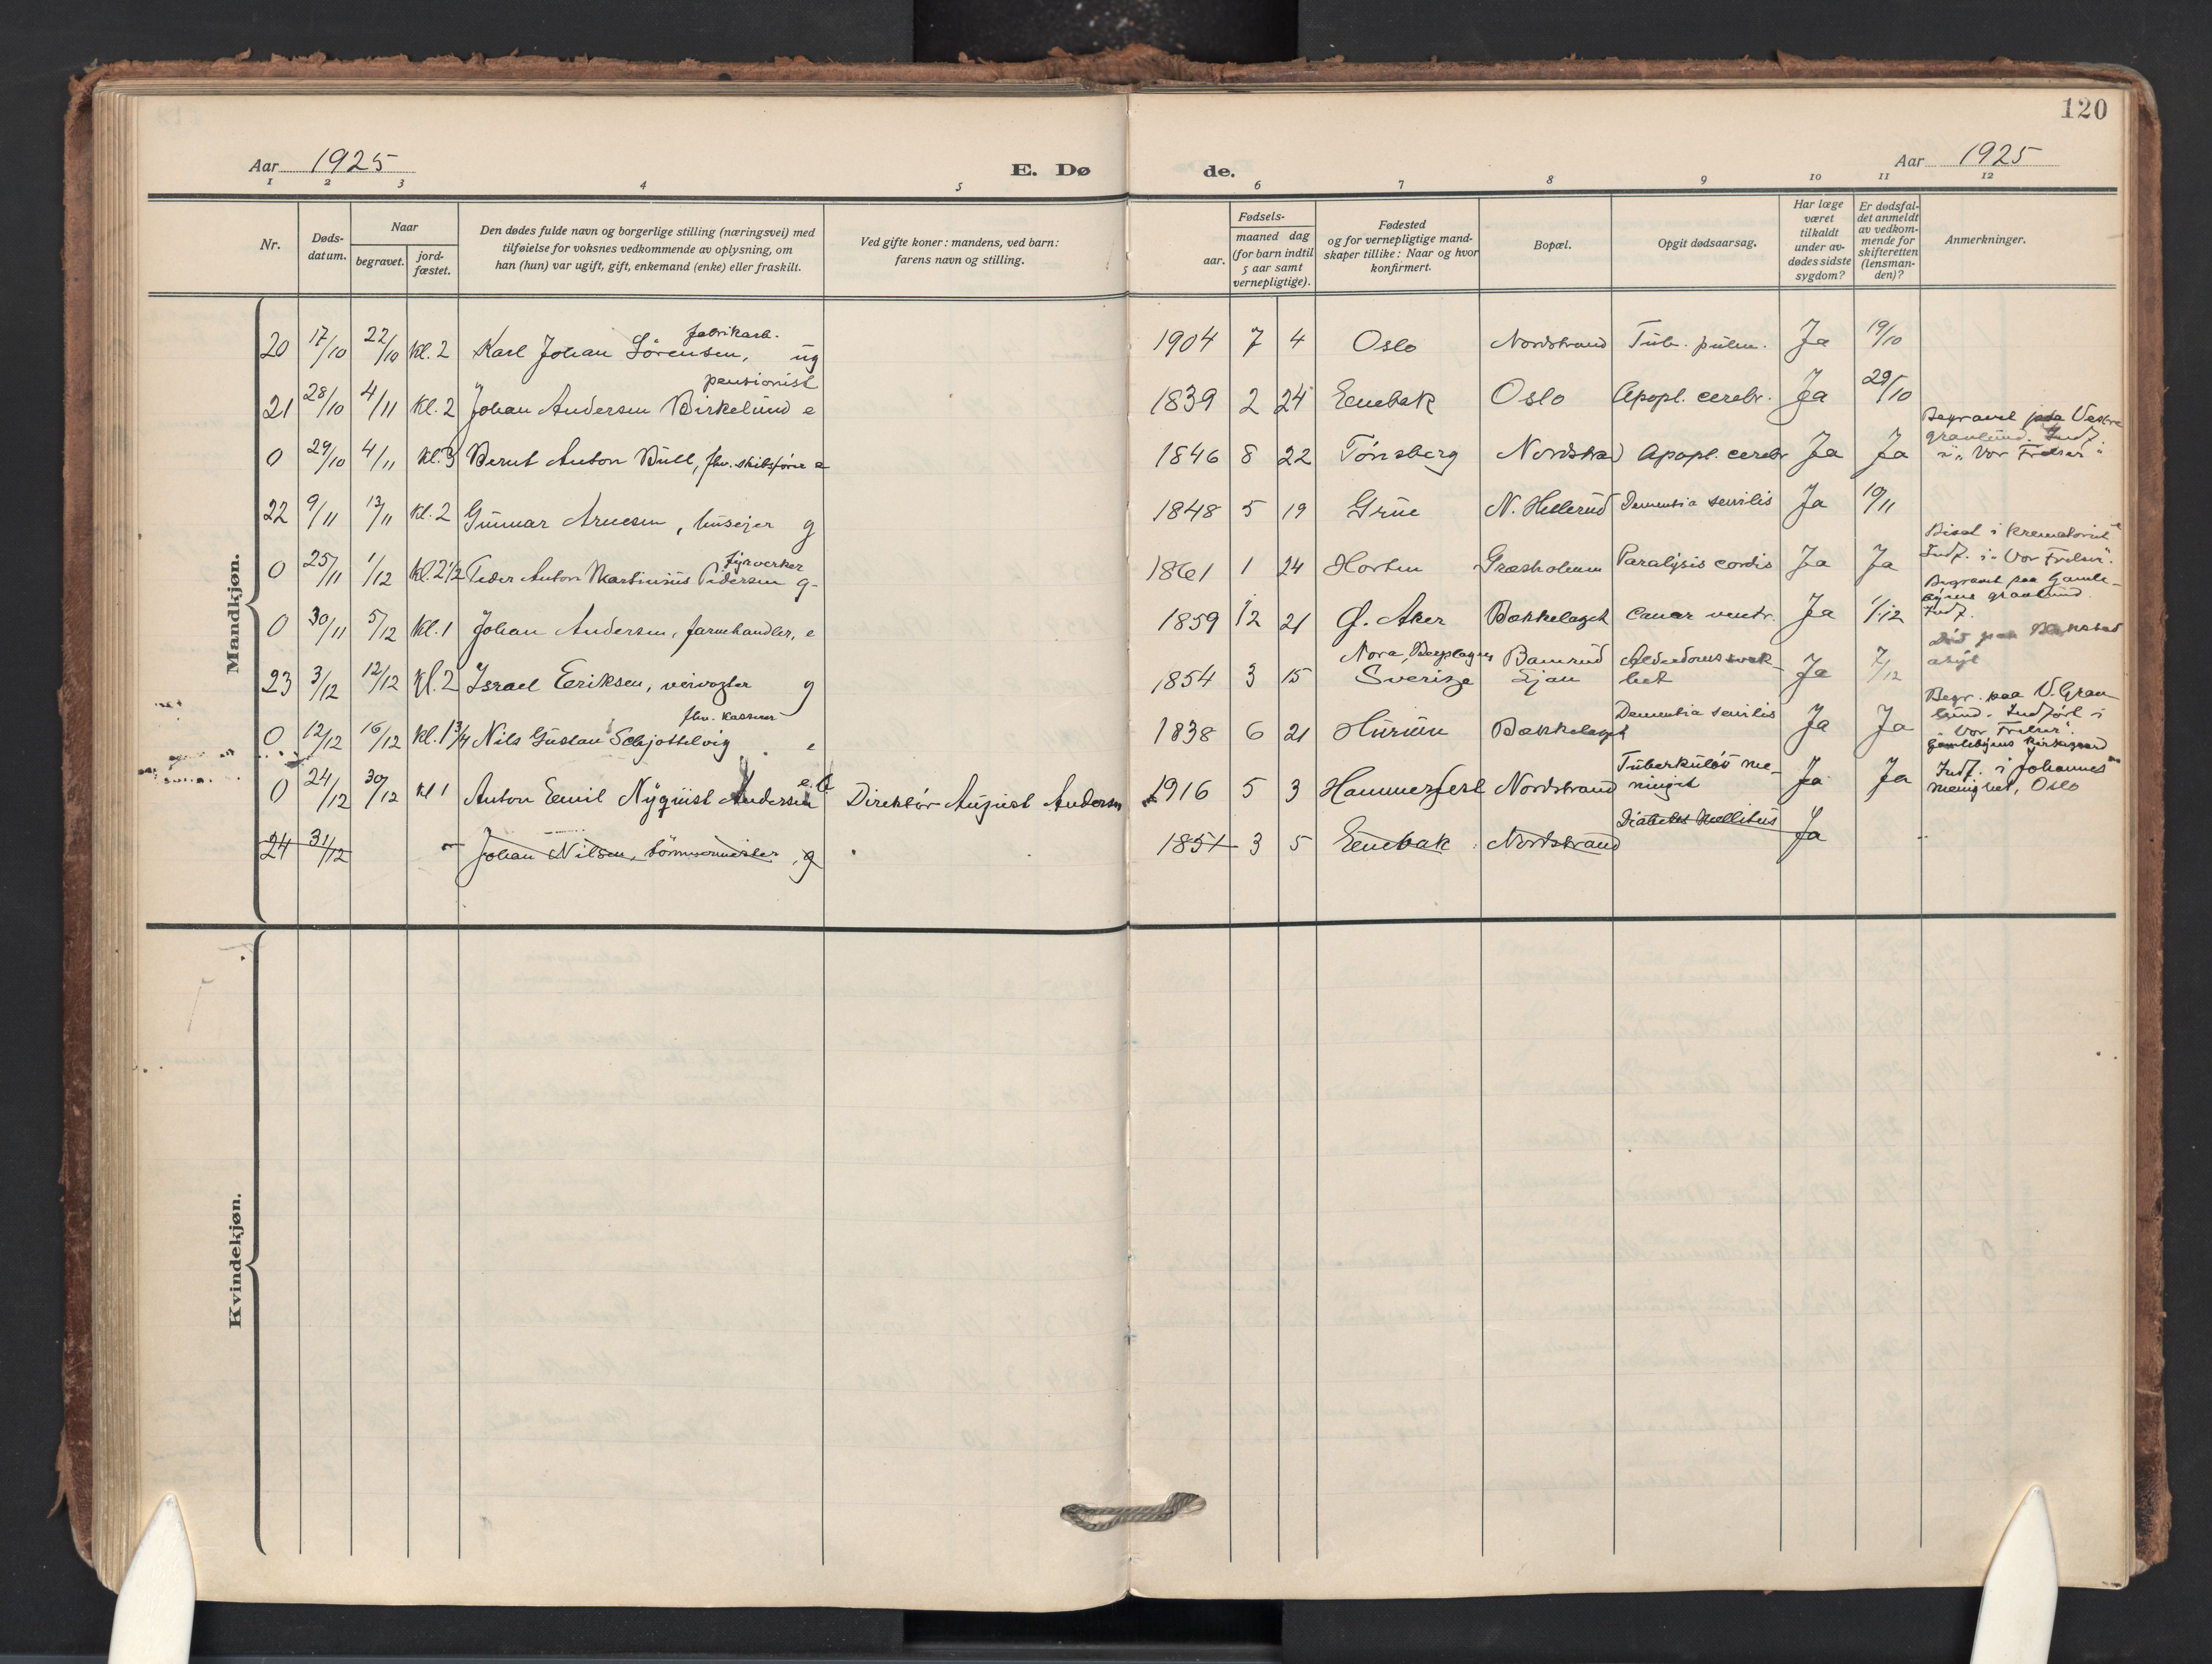 120
Aar 1925
E. Dø
de.
Aar 1925
1 2 3 4 5 6 7 8 9 10 11 12
Nr.
Døds-
datum.
Naar
begravet.
jord-
fæstet.
Den dødes fulde navn og borgerlige stilling (næringsvei) med
tilføielse for voksnes vedkommende av oplysning, om
han (hun) var ugift, gift, enkemand (enke) eller fraskilt.
Ved gifte koner: mandens, ved barn:
farens navn og stilling.
Fødsels-
aar.
maaned dag
(for barn indtil
5 aar samt
vernepligtige).
Fødested
og for vernepligtige mand-
skaper tillike: Naar og hvor
konfirmert.
Bopæl.
Opgit dødsaarsag.
Har læge
været
tilkaldt
under av-
dødes sidste
sygdom?
Er dødsfal-
det anmeldt
av vedkom-
mende for
skifteretten
(lensman-
den)?
Anmerkninger.
Mandkjøn.
fabrikarb.
20 17/10 22/10 Kl. 2 Karl Johan Sörensen, ug 1904 7 4 Oslo Nordstrand Tub. pulm. Ja 19/10
pensionist
21 28/10 4/11 Kl. 2 Johan Andersen Birkelund e 1839 2 24 Enebak Oslo Apopl. cerebr. Ja 29/10
0 29/10 4/11 Kl. 3 Bernt Anton Bull, fhv. skibsfører e 1846 8 22 Tönsberg Nordstrand Apopl. cerebr Ja Ja
Begravet paa Vestre
gravlund. Indf.
i "Vor Frelser"
22 9/11 13/11 Kl. 2 Gunnar Arnesen, huseier g 1848 5 19 Grue N. Hellerud Dementia senilis Ja 10/11
fyrverker
0 25/11 1/12 Kl. 2 1/2 Peder Anton Martinius Pedersen g 1861 1 24 Horten Græsholmen Paralysis cordis Ja Ja
Bisat i krematoriet
Indf. i "Vor Frelser".
0 30/11 5/12 Kl. 1 Johan Andersen, farvehandler, e 1859 12 21 Ø. Aker Bækkelaget Cancer ventr. Ja 1/12
Begravet paa Gamle-
byens gravlund.
Indf.
23 3/12 12/12 Kl. 2 Israel Eriksen, veivogter g 1854 3 15 Nora, Bergslagen
Sverige
Ljan
Alderdomssvak-
het
Ja 7/12
Död paa
asyl
fhv. kasserer
0 12/12 16/12 Kl. 1 3/4 Nils Gustav Schjottelvig e 1838 6 21 Hurum Bækkelaget Dementia senilis Ja Ja
Begr. paa V. Grav-
lund. Indfört i
"Vor Frelser".
0 24/12 30/12 Kl 1 Anton Emil Nyquist Andersen Direktör August Andersen 1916 5 3 Hammerfest Nordstrand Tuberkulös me-
ningit
Ja Ja
Gamlebyens kirkegaard
Indf. i Johannes
menighet, Oslo
24 31/12 Johan Nilsen, g 1851 3 5 Enebak Nordstrand Diabetes Mellitus Ja
Kvindekjøn.